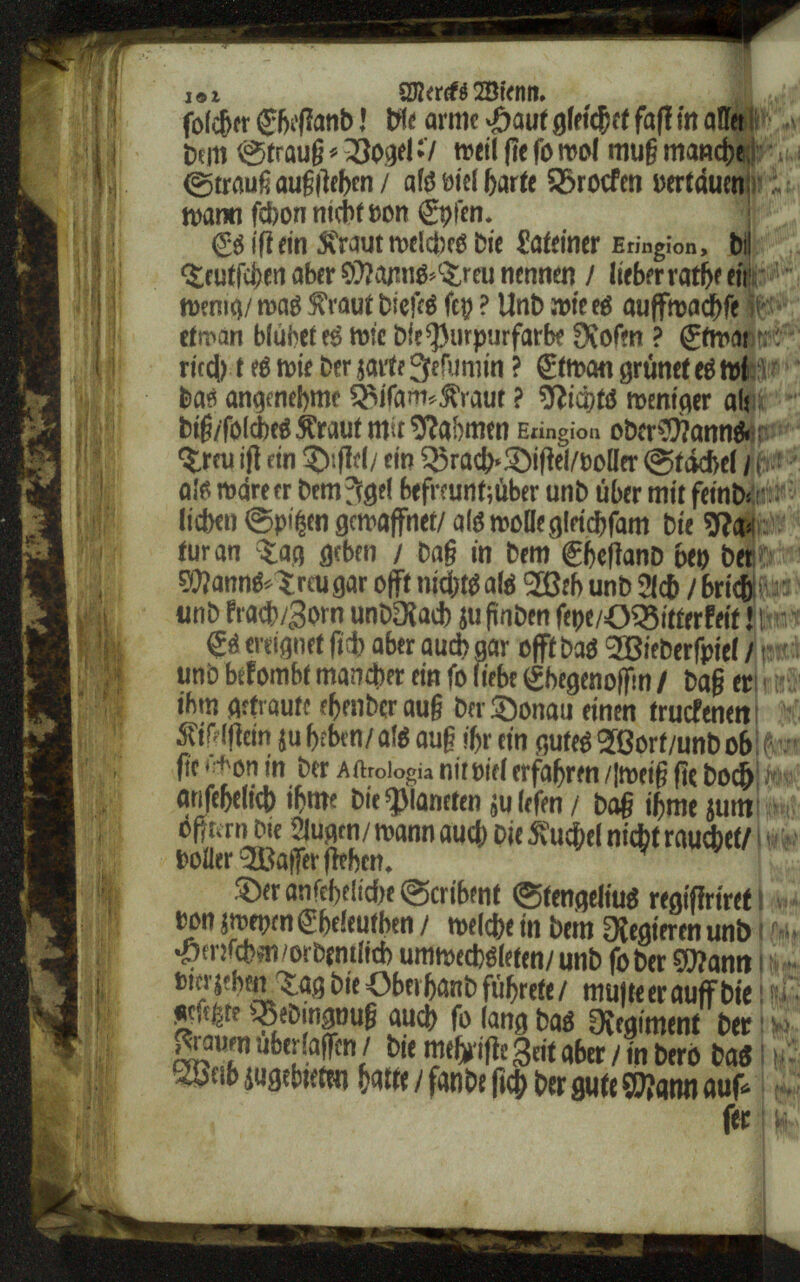 102 Mercks Wienn.
solcher Ehestand! die arme Haut gleichet fast in allem
dem Strauß-Vogel:/ weil sie so wol muß manches
Strauß außstehen / als viel harte Brocken verdäuen
wann schon nicht von Eysen.
Es ist ein Kraut welches die Lateiner Eringion, die
Teutschen aber Manns-Treu nennen / lieber rathe ein
wenig/ was Kraut dieses sey? Und wie es auffwachse
etwan blühet es wie die Purpurfarbe Rosen? Etwan
riecht es wie der zarte Jesumin? Etwan grünet es wie
das angenehme Bisam-Kraut? Nichts weniger als
diß/solches Kraut mit Nahmen Eringion oder Manns-
Treu ist ein Distel/ ein Brach-Distel/voller Stächel /
als wäre er dem Igel befreunt;über und über mit feind-
lichen Spitzen gewaffnet/ als wolle gleichsam die Na-
tur an Tag geben / daß in dem Ehestand bey der
Manns-Treu gar offt nichts als Weh und Ach / brich
und krach/Zorn und Rach zu finden seye/O Bitterkeit!
Es ereignet sich aber auch gar offt das Wiederspiel /
und bekombt mancher ein so liebe Ehegenossin / daß er
ihm getraute ehender auß der Donau einen truckenen
Kiselstein zu heben/als auß ihr ein gutes Wort/und ob
sie schon in der Astrologia nit viel erfahren /|weiß sie doch
ansehelich ihme die Planeten zu lesen / daß ihme zum
öfftern die Augen/ wann auch die Kuchel nicht rauchet/
voller Wasser stehen.
Der anseheliche Scribent Stengelius registriret
von zweyen Eheleuthen / welche in dem Regieren und
Herrschen/ordentlich umwechsleten/ und so der Mann
vierzehen Tag die Oberhand führete/ muste er auff die
gesetzte Bedingnuß auch so lang das Regiment der
Frauen überlassen / die mehriste Zeit aber / in dero das
Weib zugebieten hatte / fande sich der gute Mann auf-
ser